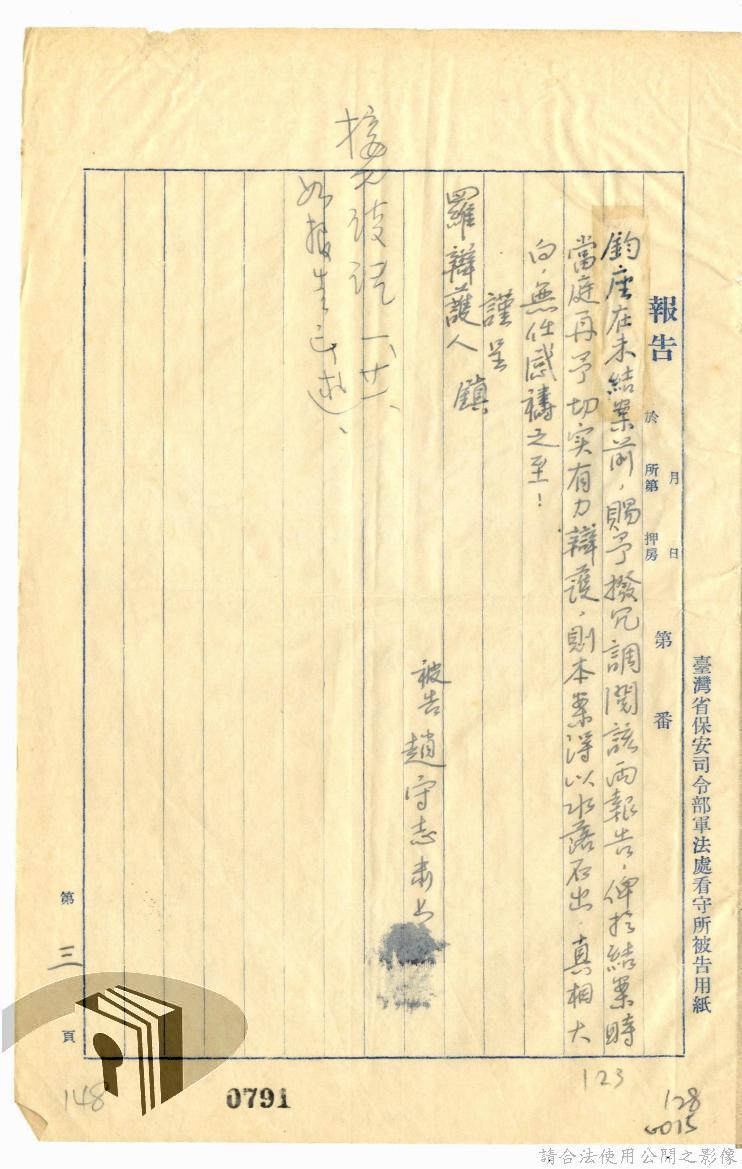 臺灣省保安司令部軍法處看守所被告用紙
報告 於 月 日 所第 押房 第 番
鈞座在未結案前，賜予撥冗調閱該兩報告，俾於結案時
當庭再予切实有力辯護，則本案得以水落石出，真相大
白，無任感禱之至！
謹呈
羅辯護人 鎮
被告趙守志
第 三 頁
148
0791
123
128
0015
請合法使用公開之影像